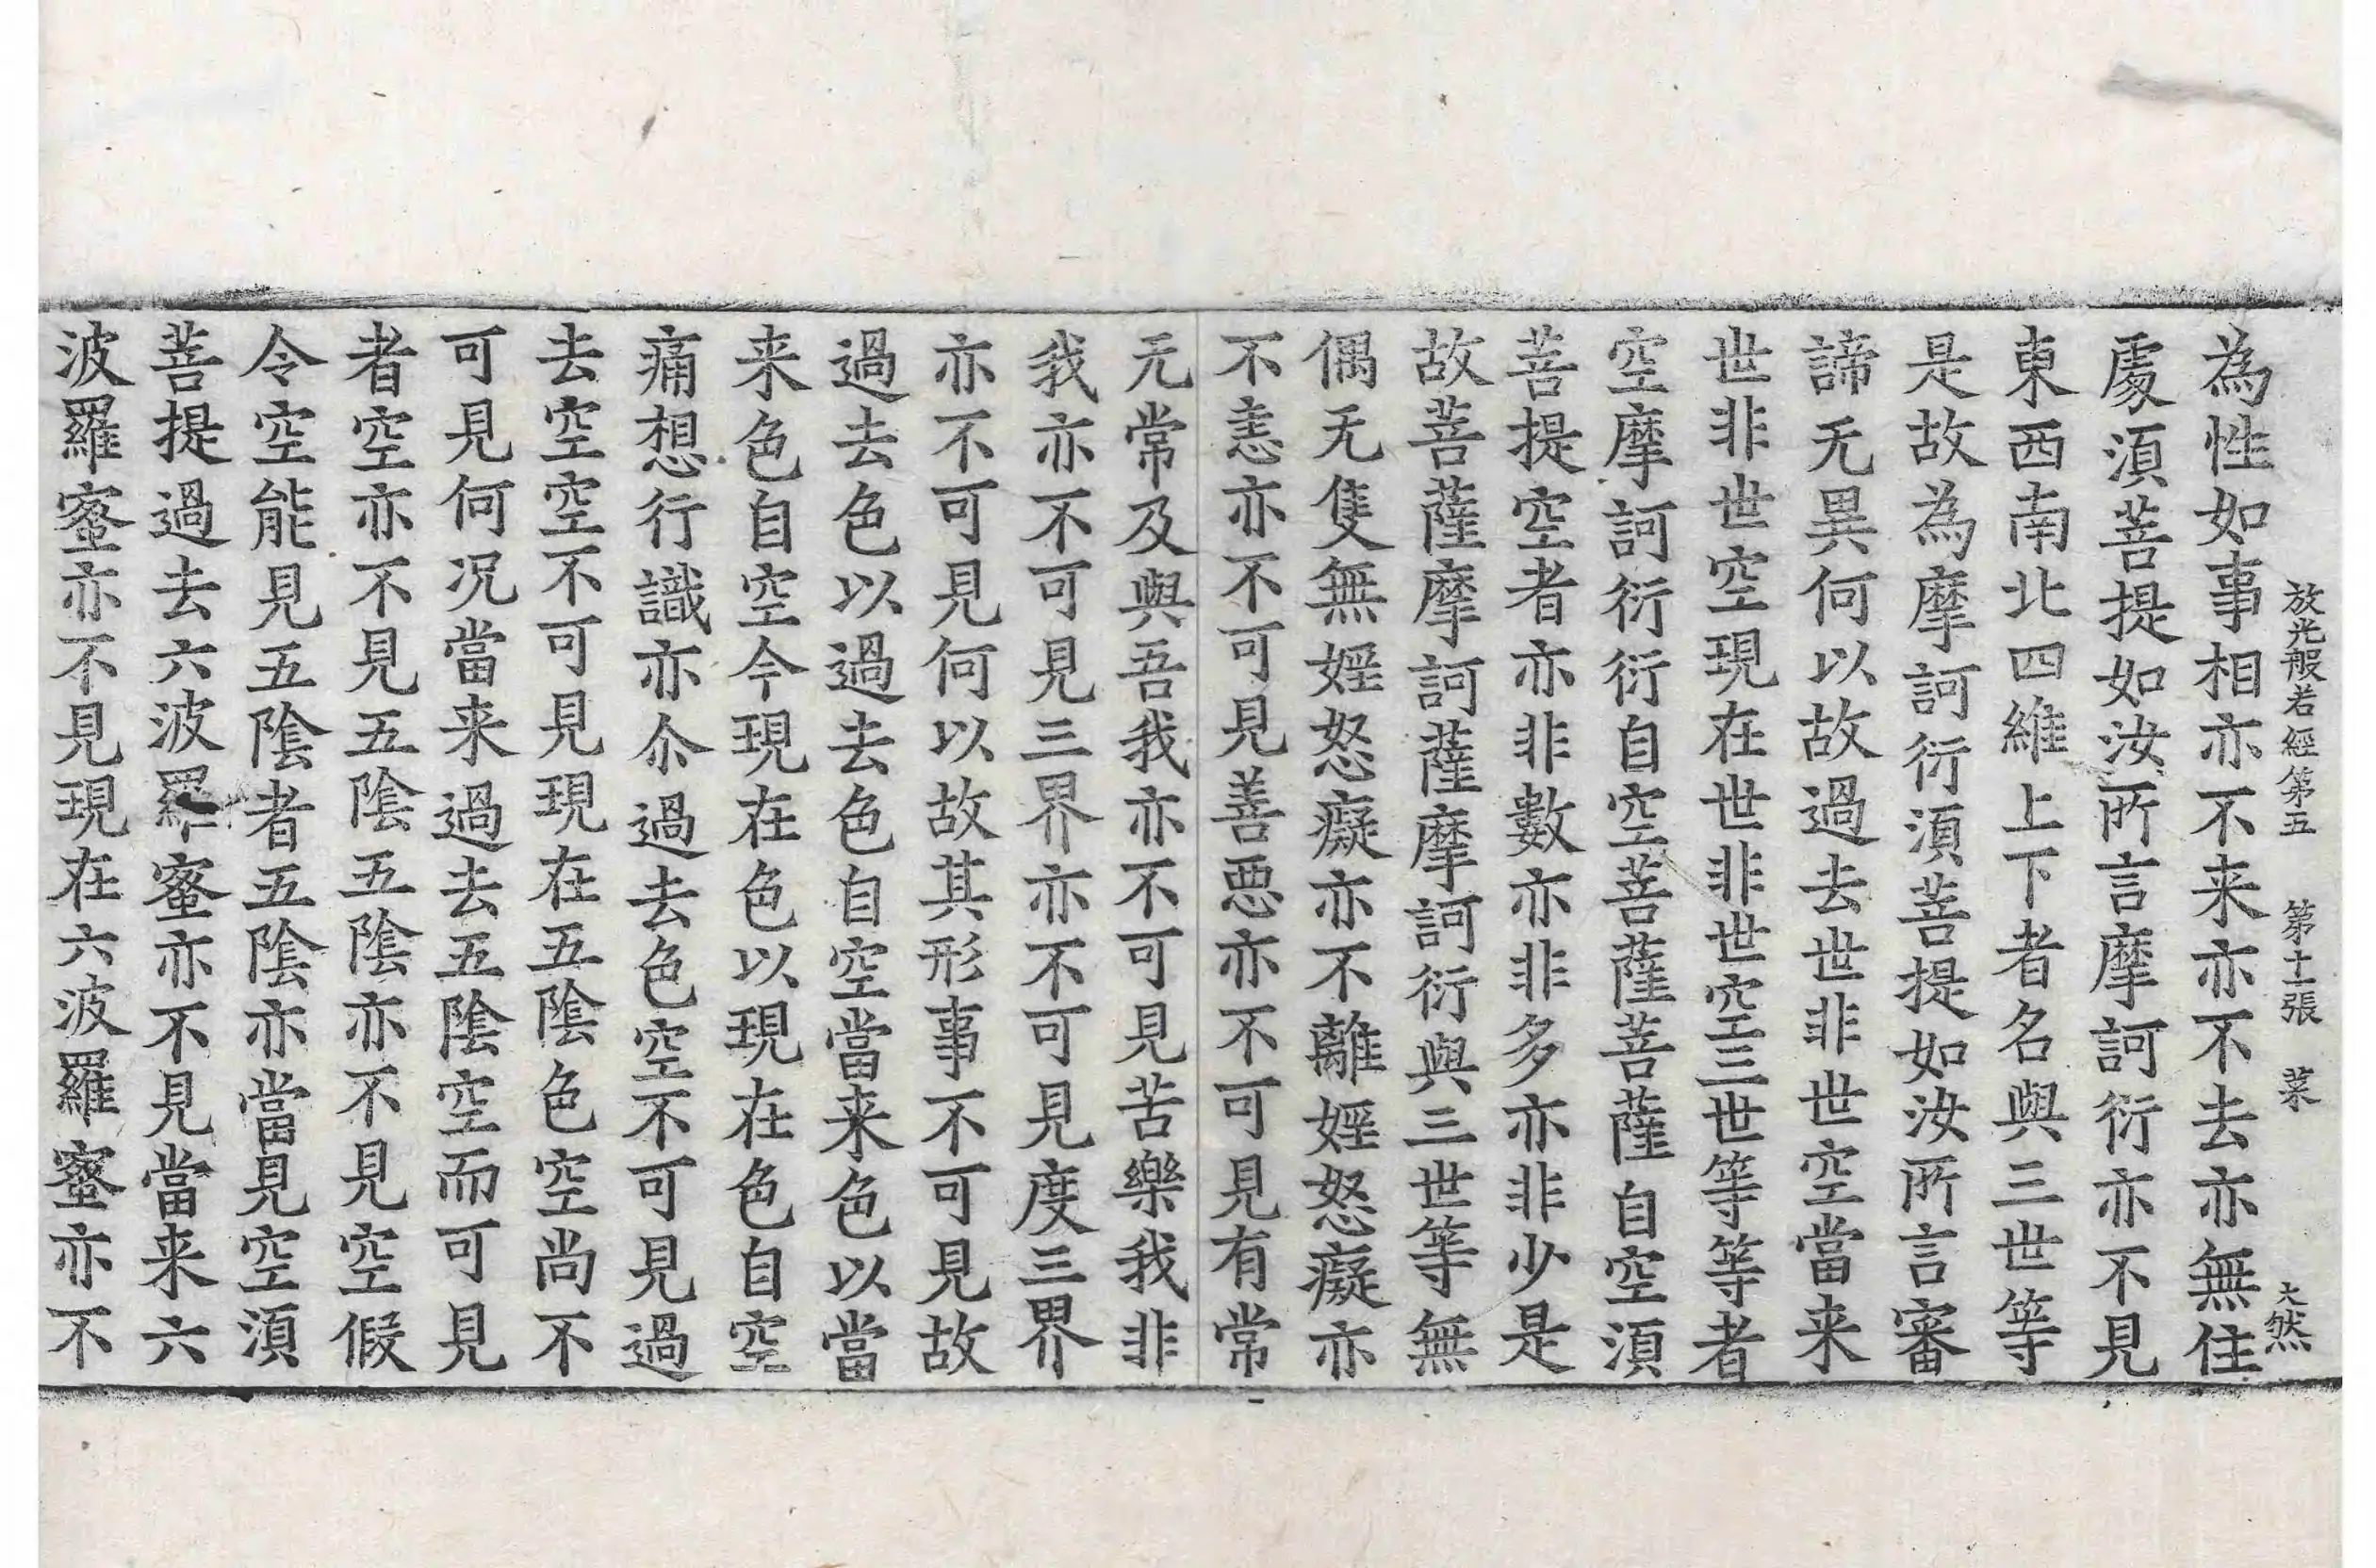 放光般若經第五 第十二張 菜 大然
為性如事相亦不来亦不去亦無住
䖏湏菩提如汝所言摩訶衍亦不見
東西南北四維上下者名與三世等
是故為摩訶衍湏菩提如汝所言審
諦无異何以故過去世非世空當来
世非世空現在世非世空三世等等者
空摩訶衍衍自空菩薩菩薩自空湏
菩提空者亦非數亦非多亦非少是
故菩薩摩訶薩摩訶衍與三世等無
偶无隻無婬怒癡亦不離婬怒癡亦
不恚亦不可見善惡亦不可見有常
无常及與吾我亦不可見苦樂我非
我亦不可見三界亦不可見度三界
亦不可見何以故其形事不可見故
過去色以過去色自空當来色以當
来色自空今現在色以現在色自空
痛想行識亦尒過去色空不可見過
去空空不可見現在五陰色空尚不
可見何况當来過去五陰空而可見
者空亦不見五陰五陰亦不見空假
令空能見五陰者五陰亦當見空湏
菩提過去六波羅蜜亦不見當来六
波羅蜜亦不見現在六波羅蜜亦不